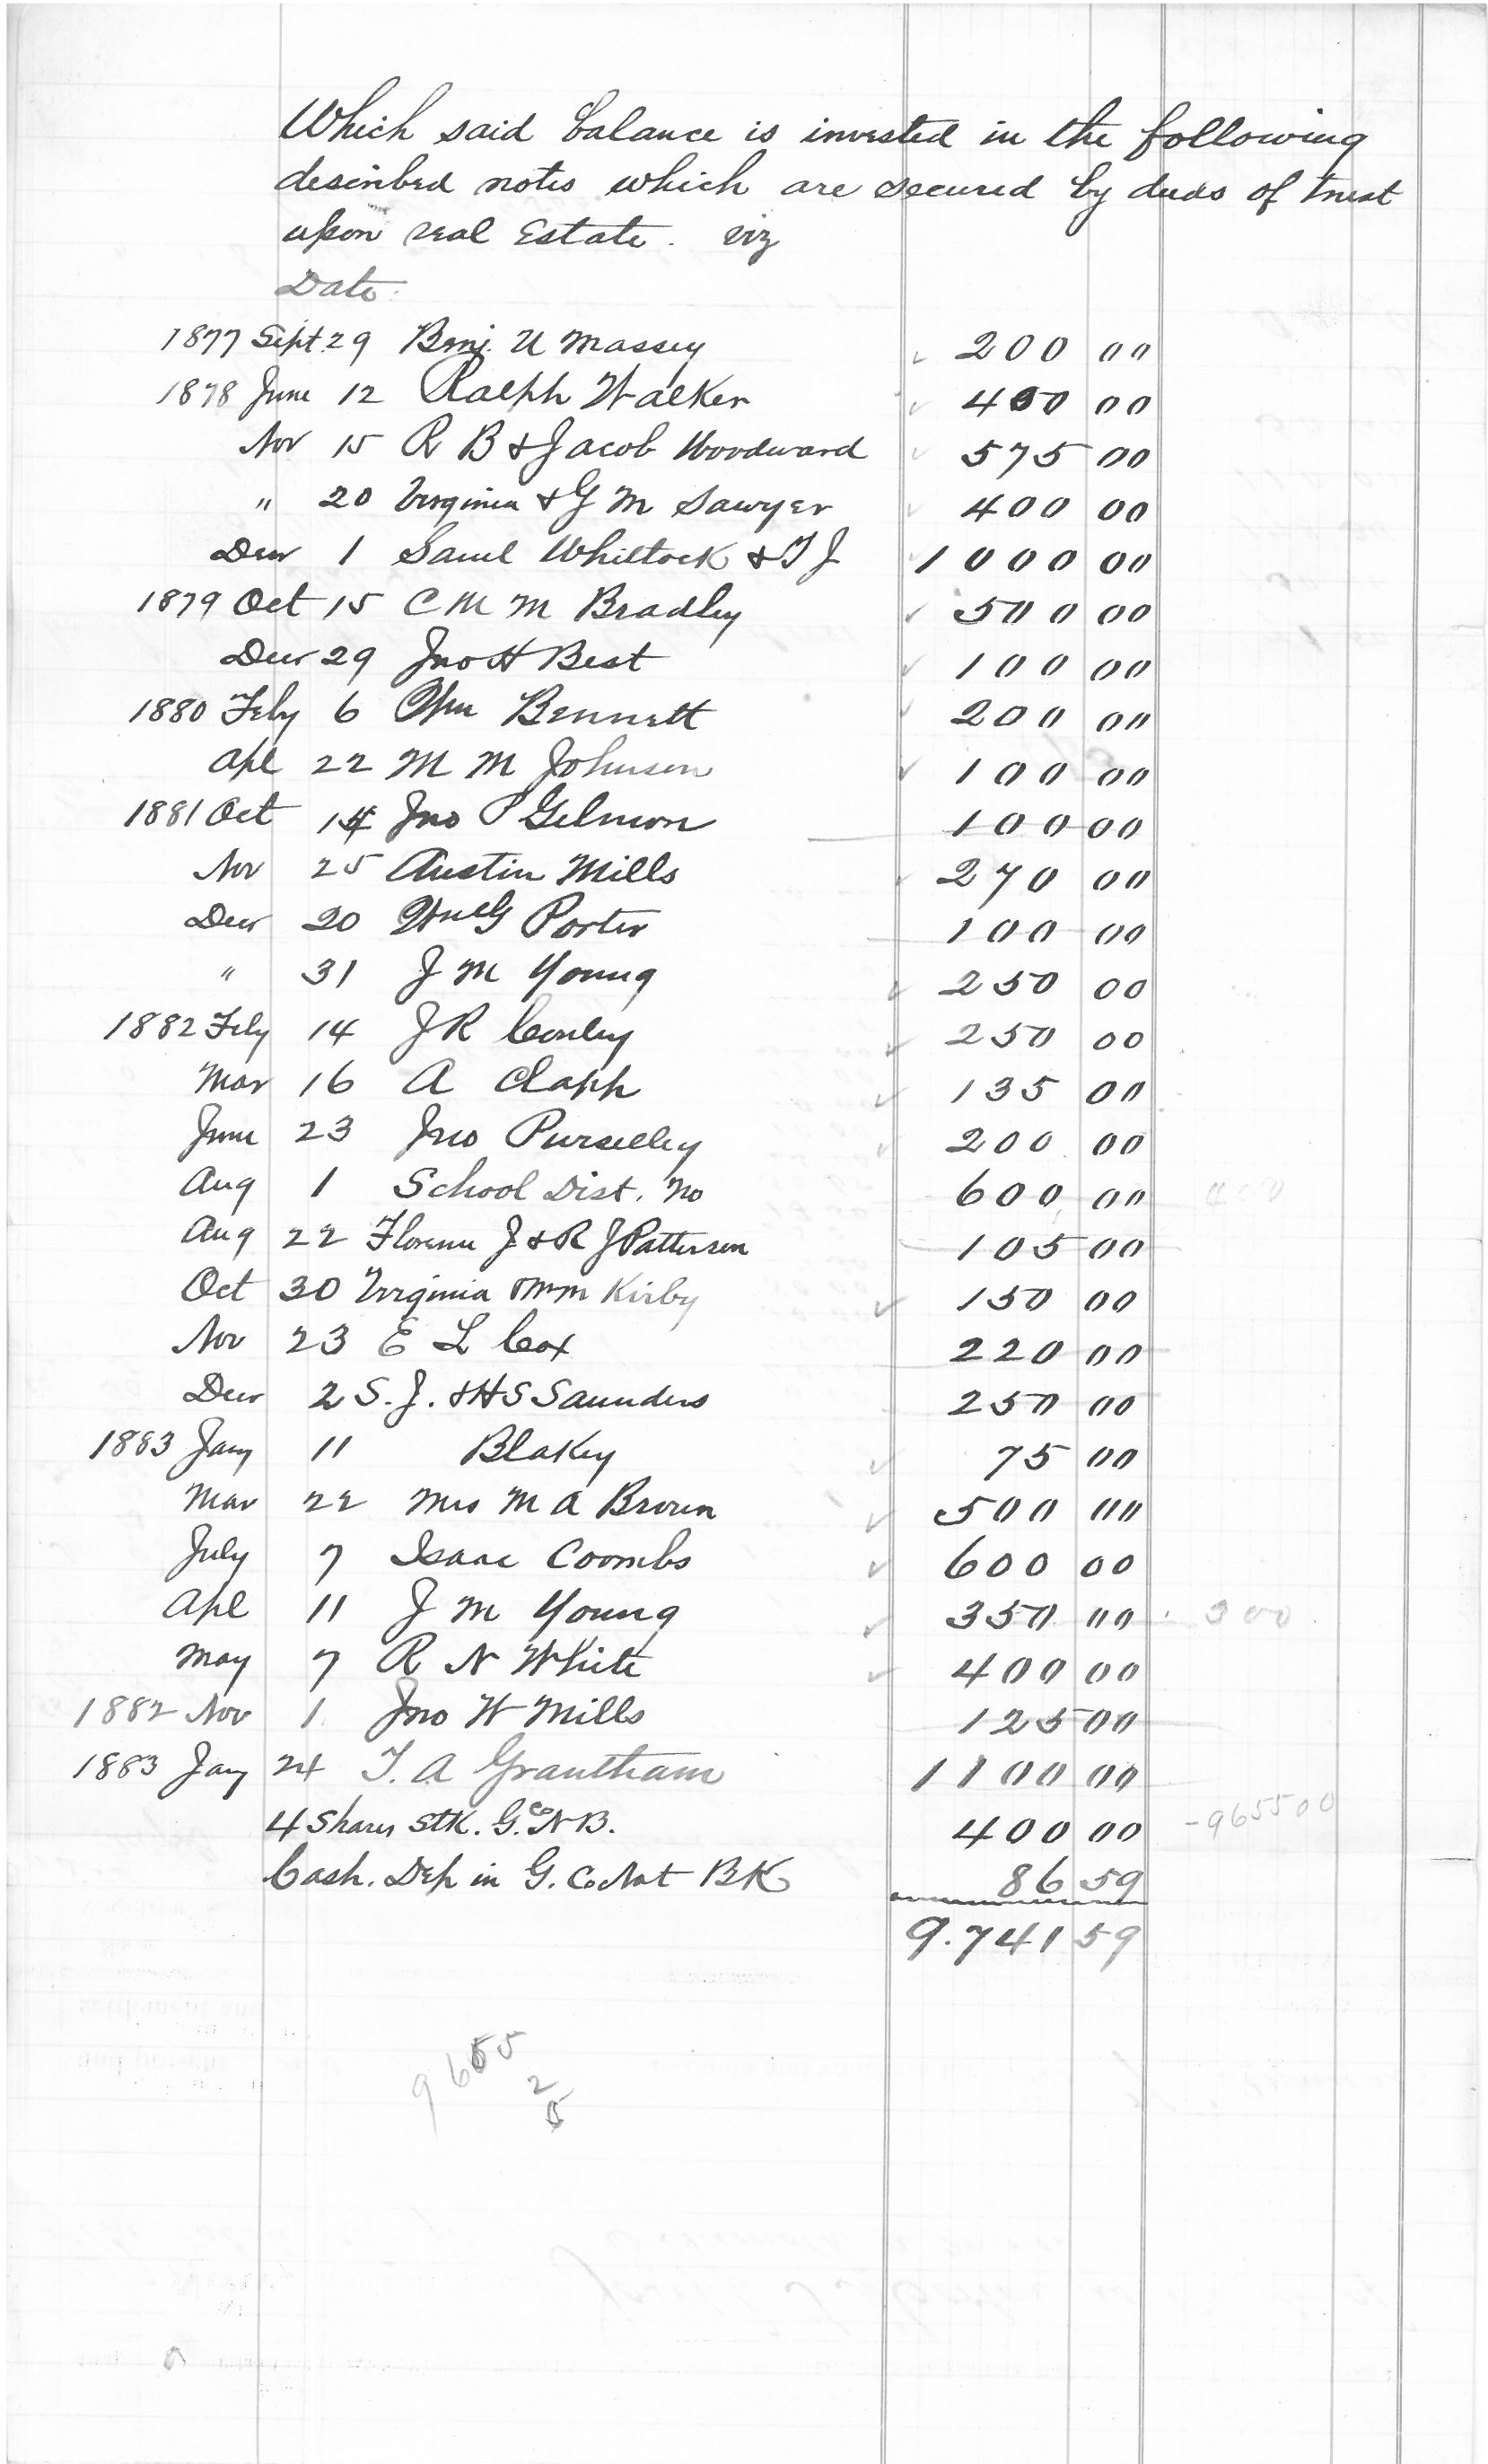 Which said balance is invested in the following
described notes which are secured by deeds of trust
upon real Estate. viz
Date.
1877 Sept 29 Benj. U Massey 200 00
1878 June 12 Ralph Walker 400 00
Nov 15 R B & Jacob Woodward 575 00
" 20 Virginia & G M Sawyer 400 00
Decr 1 Saml Whitlock & T J 1000 00
1879 Oct 15 C M M Bradley 500 00
Decr 29 Jno H Best 100 00
1880 Feby 6 Wm Bennett 200 00
Apl 22 M M Johnson 100 00
1881 Oct 14 Jno P Gilmon 100 00
Nov 25 Austin Mills 270 00
Decr 20 Wm G Porter 100 00
" 31 J M Young 250 00
1882 Feby 14 J R Conley 250 00
Mar 16 A Clapp 135 00
June 23 Jno Purselley 200 00
Aug 1 School Dist. No 600 00 400
Aug 22 Florence J & R J Patterson 105 00
Oct 30 Virginia & M M Kirby 150 00
Nov 23 E L Cox 220 00
Decr 2 S. J. & H S Saunders 250 00
1883 Jany 11 Blakey 75 00
Mar 22 Mrs M A Brown 500 00
July 7 Isaac Coombs 600 00
Apl 11 J M Young 350 00 300
May 7 R N White 400 00
1882 Nov 1 Jno W Mills 125 00
1883 Jany 24 T. A Grantham 1100 00
4 Shares Stk. G. Co N B. 400 00 -9655 00
Cash. Dep in G. Co Nat BK 86 59
9.741 59
9655
2
5